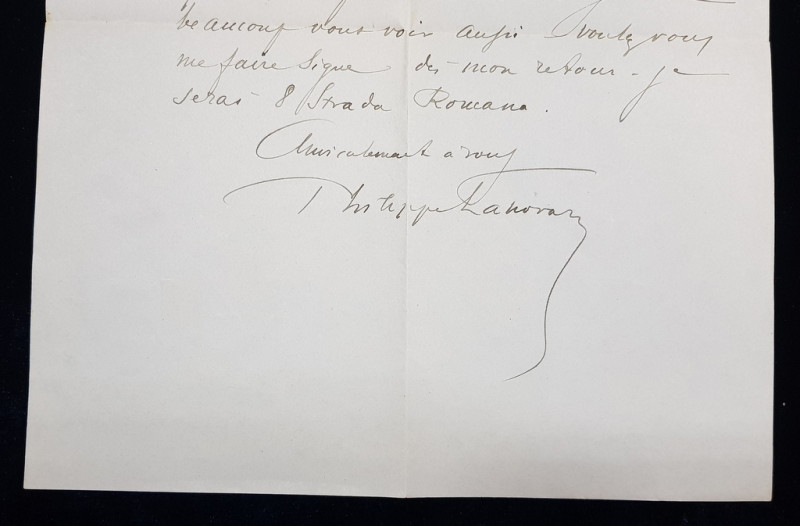 beaucoup vous voir aussi voulez vous
me faire signe dès mon retour - je
serai 8 Strada Romana.
Amicalement à vous
Philippe